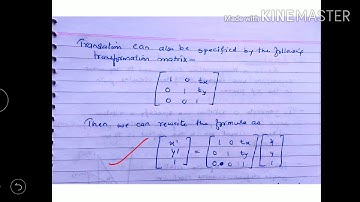 Made with KINEMASTER
Translation can also be specified by the following
transformation matrix—
1 0 tx
0 1 ty
0 0 1
Then we can rewrite the formula as
x' 1 0 tx x
y' = 0 1 ty y
1 0 0 1 1